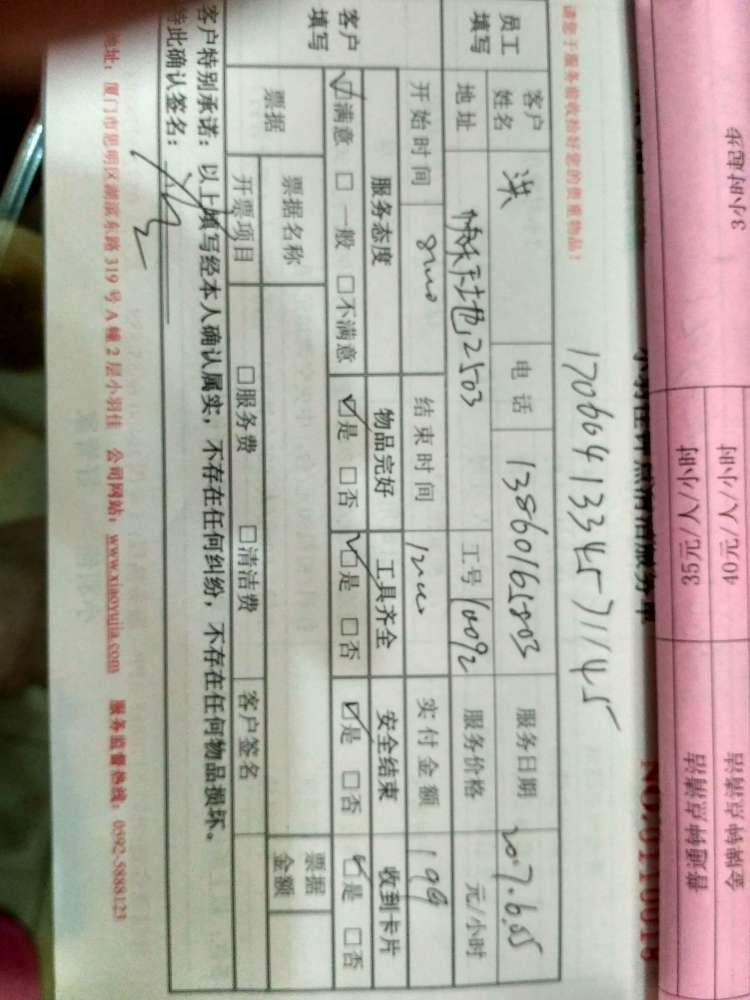 3小时起步
35元/人/小时
40元/人/小时
普通钟点清洁
金牌钟点清洁
小羽佳钟点清洁服务单
请您于服务前收拾好您的贵重物品！
1706041334571145
员工填写
客户姓名 洪 电话 13860165803 服务日期 2017.6.05
地址 2503 工号 10092 服务价格 元/小时
开始时间 结束时间 实付金额 199
客户填写
服务态度 物品完好 工具齐全 安全结束 收到卡片
☑满意 □一般 □不满意 ☑是 □否 ☑是 □否 ☑是 □否 ☑是 □否
票据 票据名称 票据金额
开票项目 □服务费 □清洁费 客户签名
客户特别承诺：以上填写经本人确认属实，不存在任何纠纷，不存在任何物品损坏。
特此确认签名：
地址：厦门市思明区湖滨东路319号A幢2层小羽佳 公司网站：www.xiaoyujia.com 服务监督热线：0592-5888123